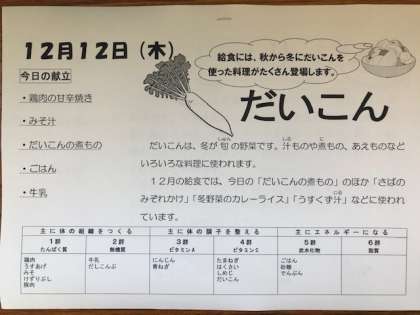 12月12日（木）
給食には、秋から冬にだいこんを
使った料理がたくさん登場します。
今日の献立
・鶏肉の甘辛焼き
・みそ汁
・だいこんの煮もの
・ごはん
・牛乳
だいこん
だいこんは、冬が旬の野菜です。汁ものや煮もの、あえものなど
いろいろな料理に使われます。
12月の給食では、今日の「だいこんの煮もの」のほか「さばの
みぞれかけ」「冬野菜のカレーライス」「うすくず汁」などに使われ
ています。
主に体の組織をつくる 主に体の調子を整える主にエネルギーになる
1群 2群 3群 4群 5群 6群
たんぱく質 無機質 ビタミンA ビタミンC 炭水化物 脂質
鶏肉 牛乳 にんじん たまねぎ ごはん
うすあげ だしこんぶ 青ねぎ はくさい 砂糖
みそ しめじ でんぷん
けずりぶし だいこん
豚肉